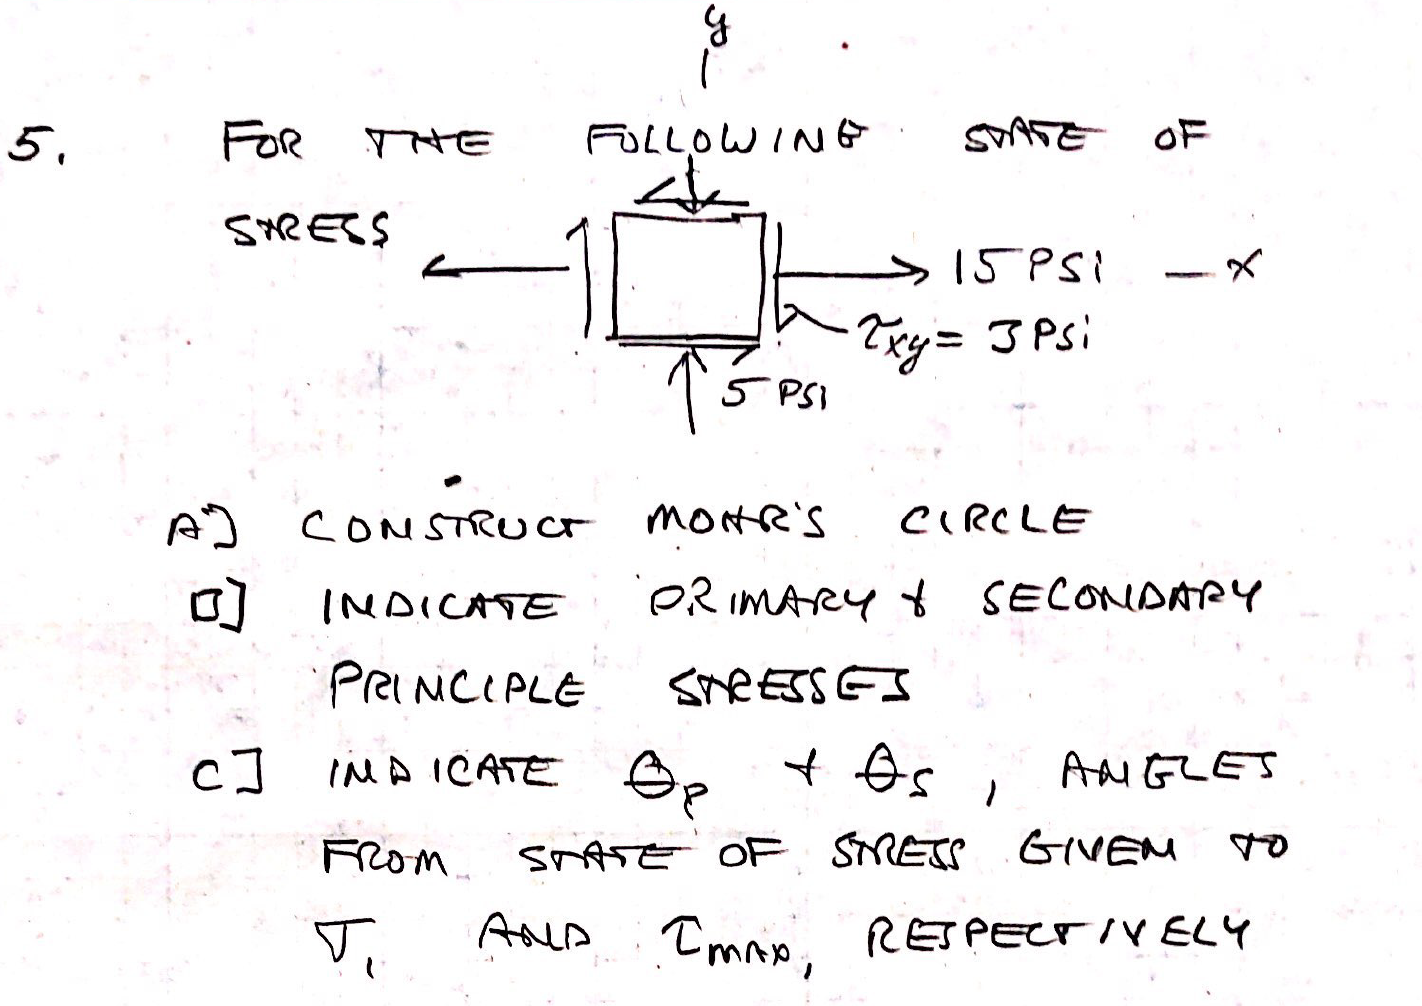 y
5. FOR THE FOLLOWING STATE OF
STRESS
15 PSi - x
τxy = 3 PSi
5 PSI
A] CONSTRUCT MOHR'S CIRCLE
B] INDICATE PRIMARY & SECONDARY
PRINCIPLE STRESSES
C] INDICATE θp & θs, ANGLES
FROM STATE OF STRESS GIVEN TO
σ1 AND τmax, RESPECTIVELY